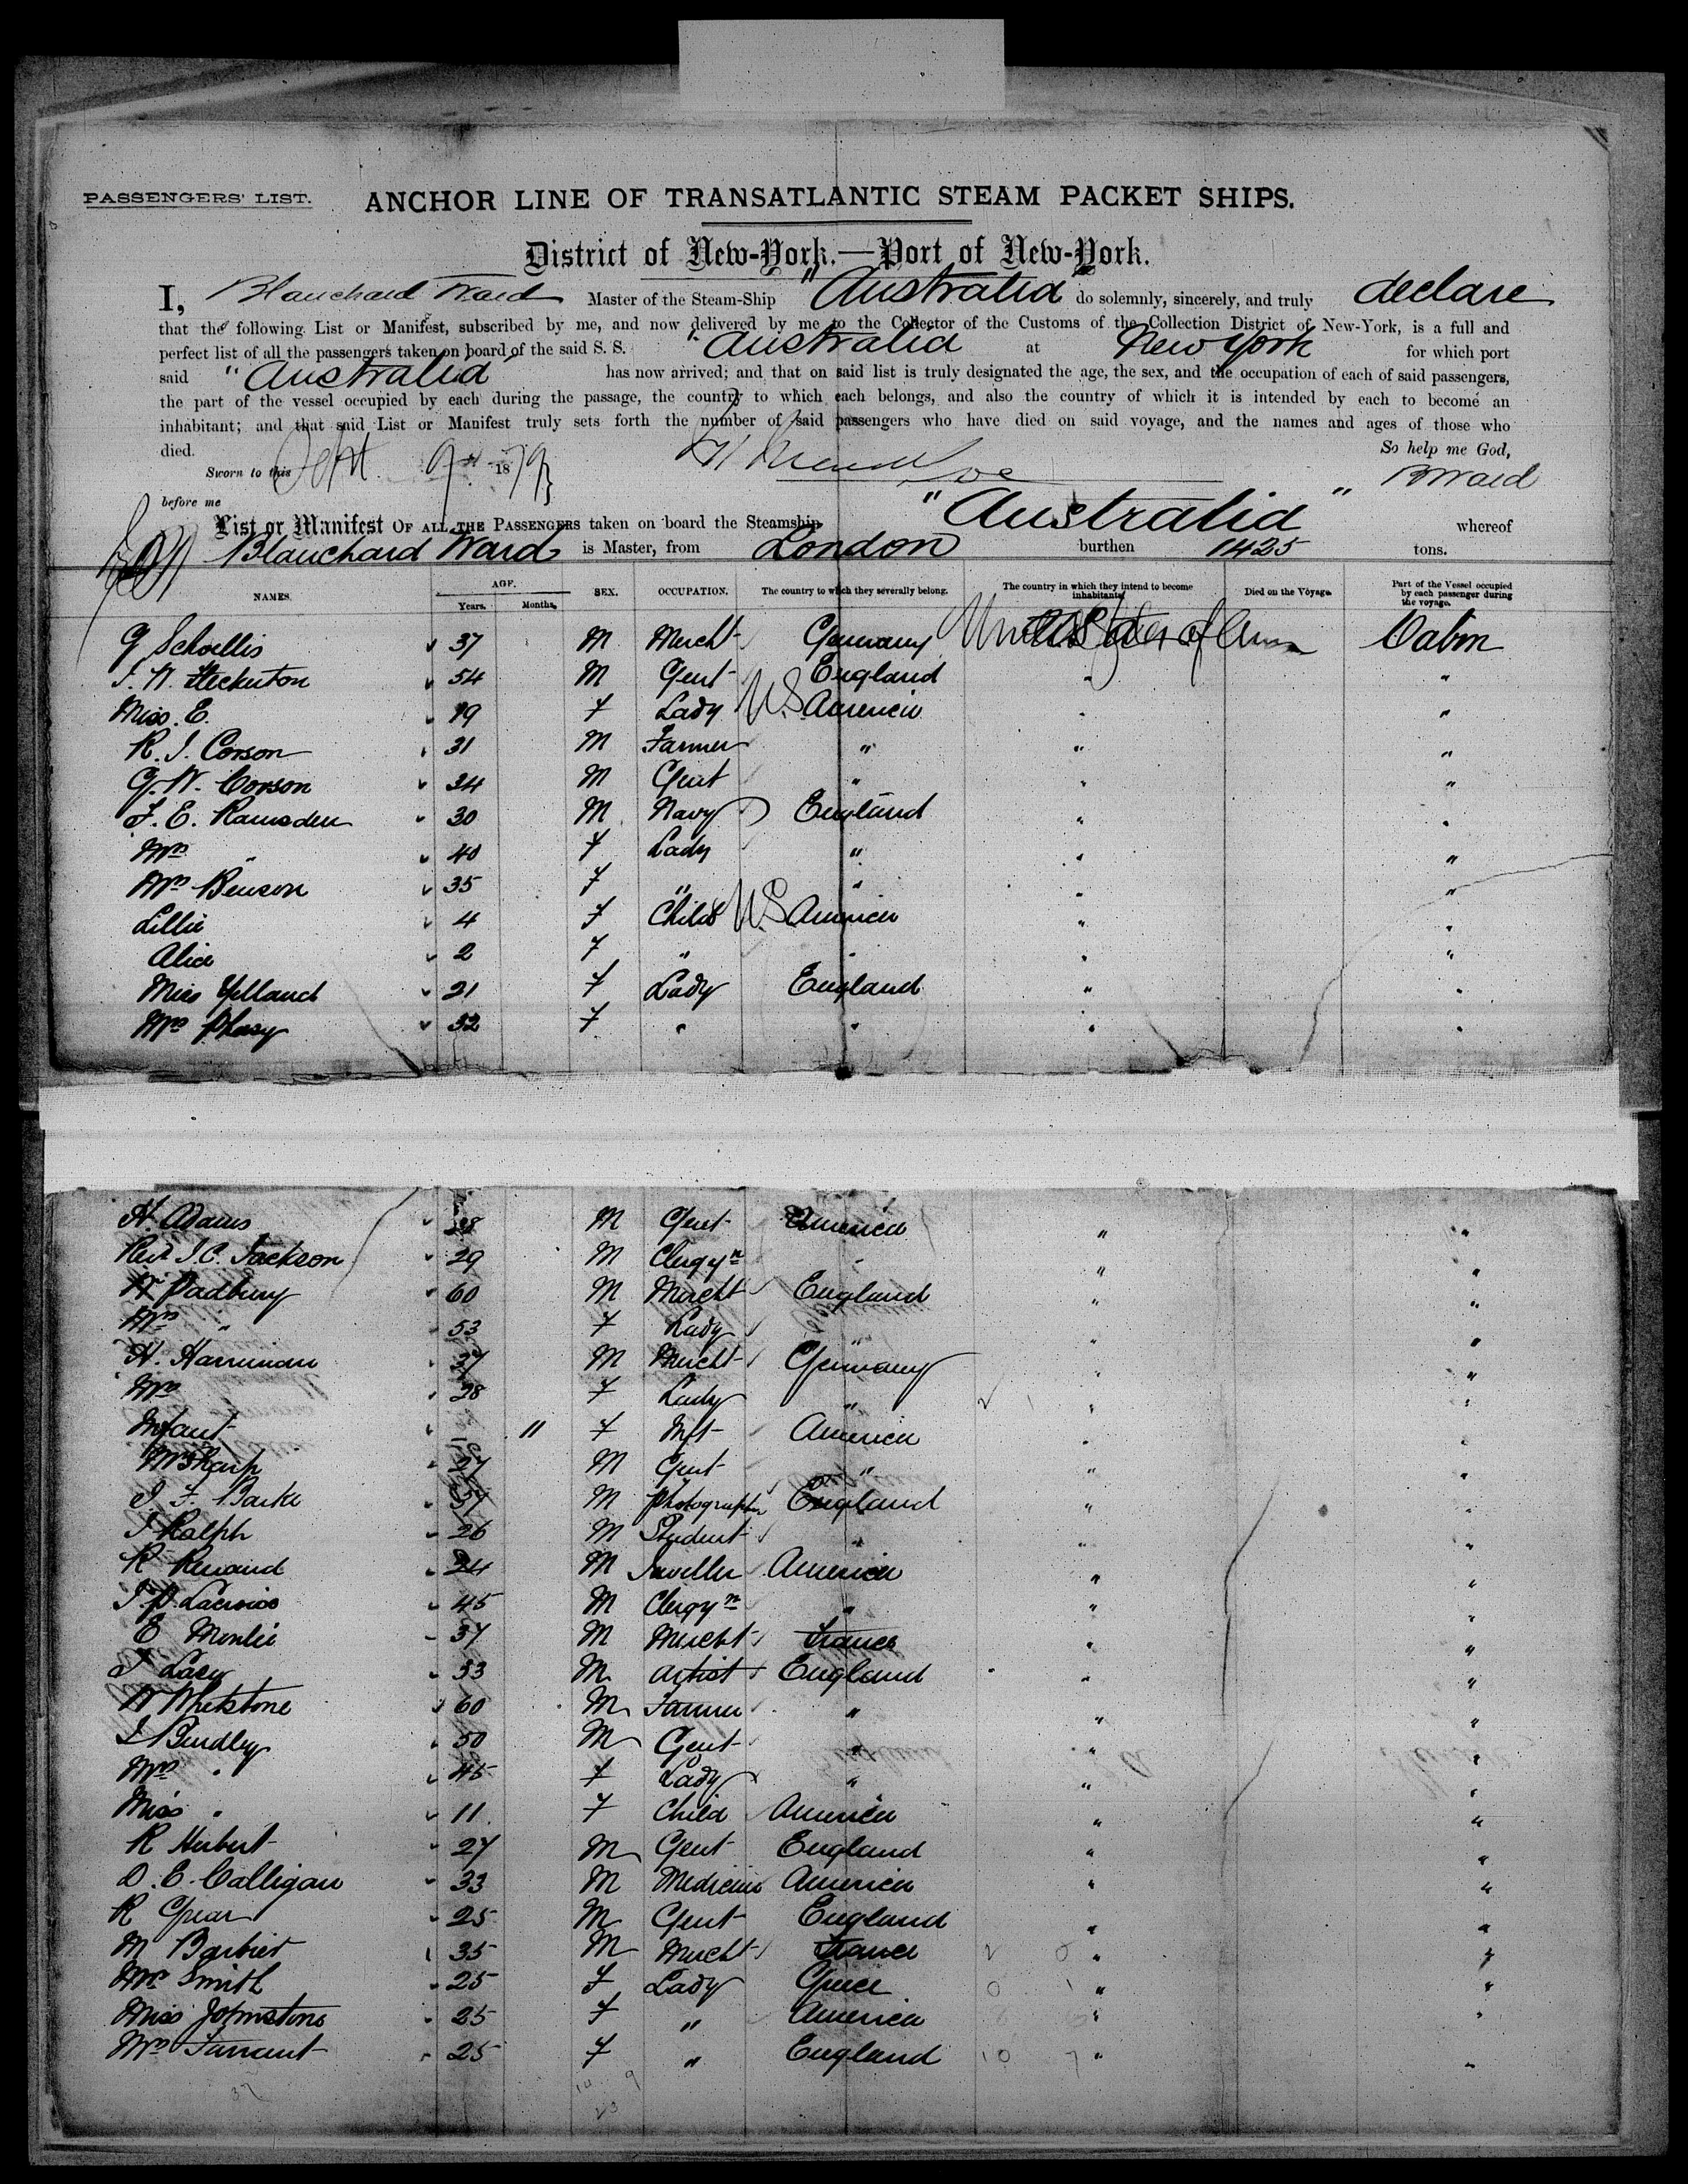 PASSENGERS' LIST. ANCHOR LINE OF TRANSATLANTIC STEAM PACKET SHIPS.
District of New-York.—Port of New-York.
I, Blanchard Ward Master of the Steam-Ship "Australia" do solemnly, sincerely, and truly declare
that the following List or Manifest, subscribed by me, and now delivered by me to the Collector of the Customs of the Collection District of New-York, is a full and
perfect list of all the passengers taken on board of the said S. S. "Australia at New York for which port
said "Australia" has now arrived; and that on said list is truly designated the age, the sex, and the occupation of each of said passengers,
the part of the vessel occupied by each during the passage, the country to which each belongs, and also the country of which it is intended by each to become an
inhabitant; and that said List or Manifest truly sets forth the number of said passengers who have died on said voyage, and the names and ages of those who
died. So help me God,
Sworn to this Sept. 9th 1879 BWard
before me
List or Manifest OF ALL THE PASSENGERS taken on board the Steamship "Australia" whereof
Blanchard Ward is Master, from London burthen 1425 tons.
NAMES. AGE. Years. Months. SEX. OCCUPATION. The country to which they severally belong. The country in which they intend to become inhabitants. Died on the Voyage. Part of the Vessel occupied by each passenger during the voyage.
G Schollis 37 M Mercht Germany United States of Cabin
J. W. 54 M Gent England " "
Miss E. 19 F Lady U.S. America " "
R. J. Corson 31 M Farmer " " "
G. W. Corson 34 M Gent " " "
F. E. Ramsden 30 M Navy England " "
Mrs " 40 F Lady " " "
Mrs Benson 35 F " " " "
Lillie 4 F Child U.S. America " "
Alice 2 F " " " "
Miss Yelland 21 F Lady England " "
Mrs 32 F " " " "
H. Adams 28 M Gent America " "
Revd J. C. Jackson 29 M Clergyn " " "
W Padbury 60 M Mercht England " "
Mrs " 53 F Lady " " "
H. Harriman 37 M Mercht Germany " "
Mrs 28 F Lady " " "
Infant 11 F Inft America " "
Mr Sharp 27 M Gent " " "
J. F. Barke M Photographer England " "
J Ralph 26 M Student " " "
R Renaud 24 M America " "
J. P. Lacroix 45 M Clergyn " " "
E 37 M Mercht France " "
J Lacy 33 M Artist England " "
W Whetstone 60 M Farmer " " "
J Bindley 50 M Gent " " "
Mrs " 45 F Lady " " "
Miss " 11 F Child America " "
R Herbert 27 M Gent England " "
D. E. Calligan 33 M Medicine America " "
R Grear 25 M Gent England " "
M Barbier 35 M Mercht France " "
Mrs Smith 25 F Lady Greece " "
Miss Johnstone 25 F " America " "
Mrs Tarrant 25 F " England " "
37